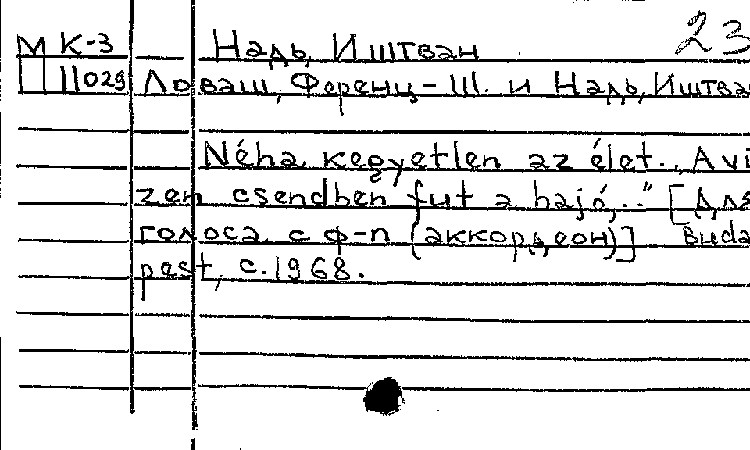 23
М К-3 Надь, Иштван
11029 Ловаш, Ференц - Ш. и Надь, Иштва
Néha kegyetlen az élet.. A vi
zen csendben fut a hajó,.." [Для
голоса с ф-п (аккордеон)] Buda
pest, c.1968.